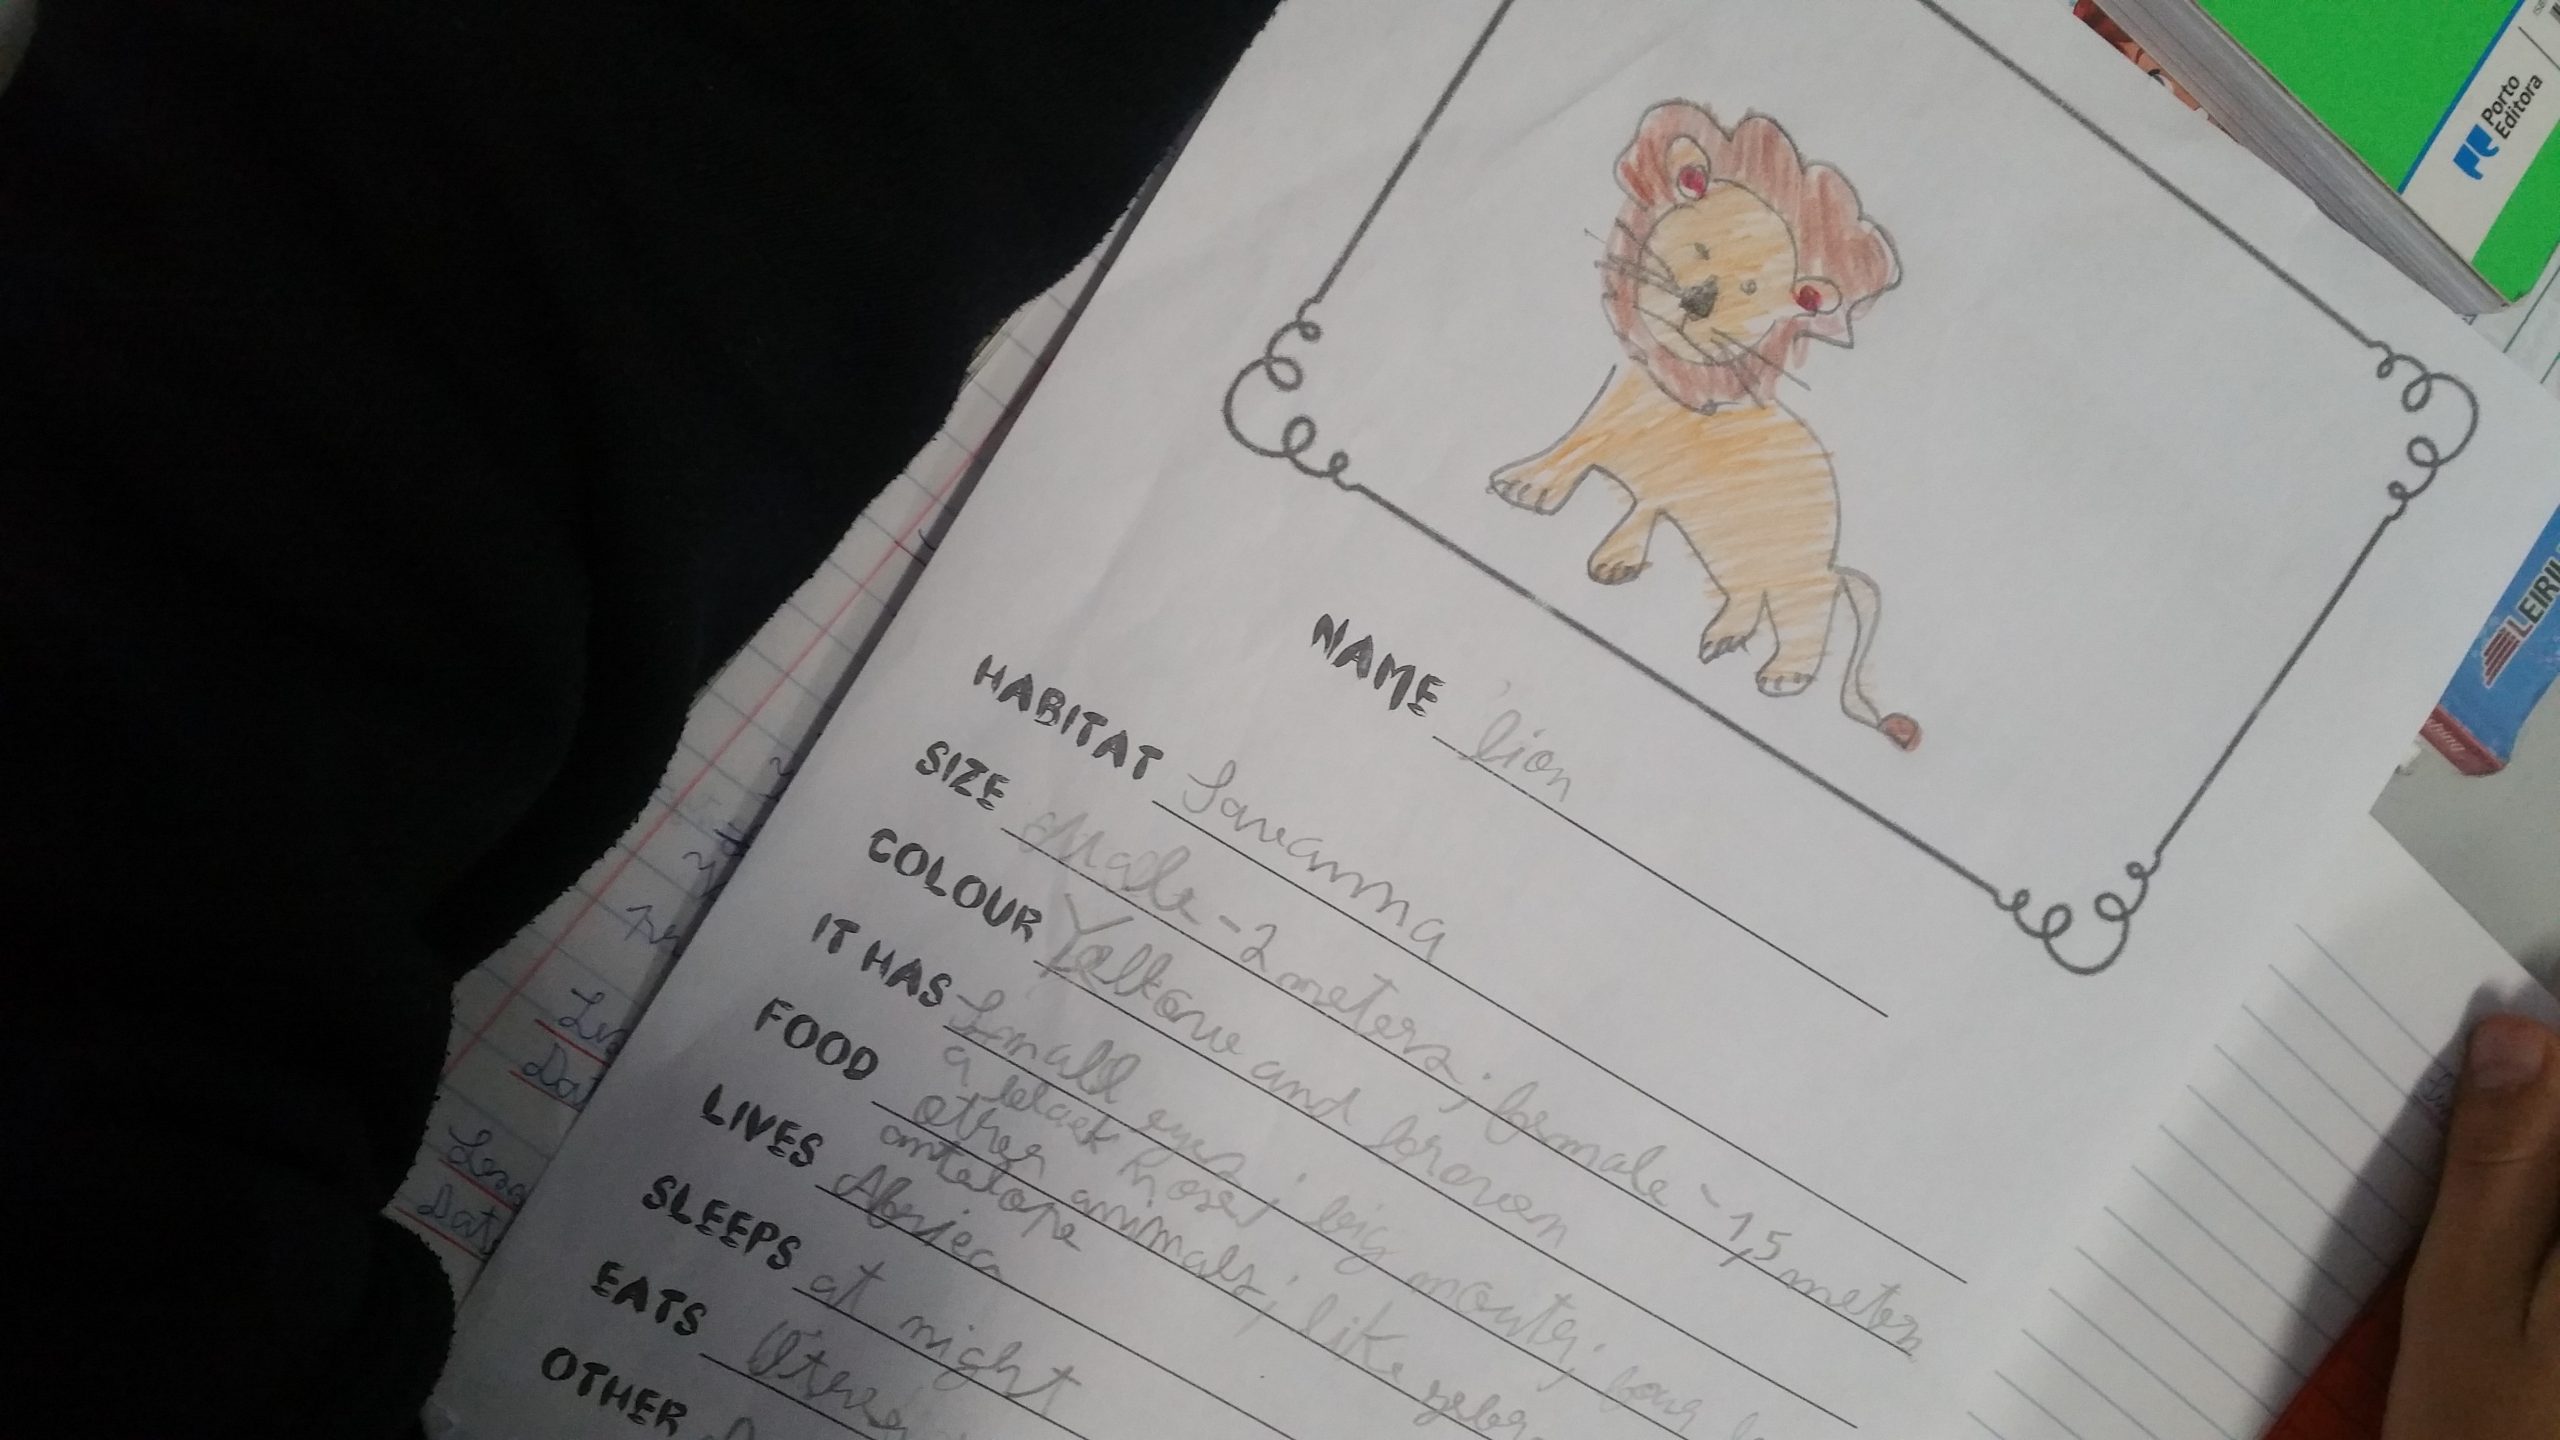 Porto
Editora
LEIRI
NAME lion
HABITAT Savanna
SIZE Male - 2 meters; female - 1,5 meters
COLOUR Yellow and brown
IT HAS Small eyes; big mouth; four
a black nose;
FOOD other animals; like zebra
antelope
LIVES Africa
SLEEPS at night
EATS Other
OTHER